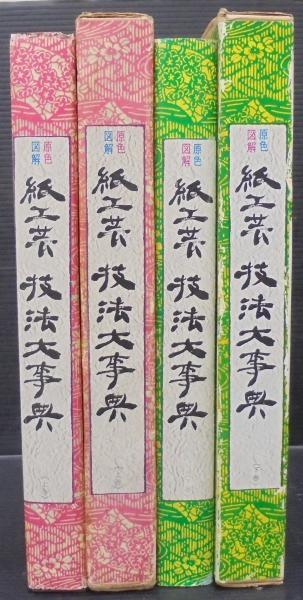 原色
図解
紙工芸 技法大事典
(上巻)
原色
図解
紙工芸 技法大事典
(上巻)
原色
図解
紙工芸 技法大事典
原色
図解
紙工芸 技法大事典
(下巻)